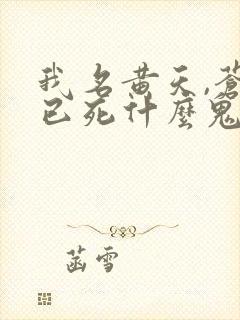 我名黄天,蒼
已死什麼鬼
菡雪